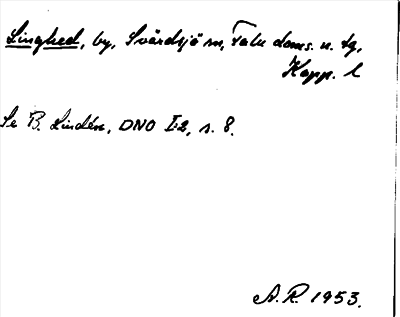 Linghed, by, Svärdsjö sn, Falu doms. o. tg,
Kopp. l
Se B. Lindén, DNO I:2, s. 8.
A. R. 1953.